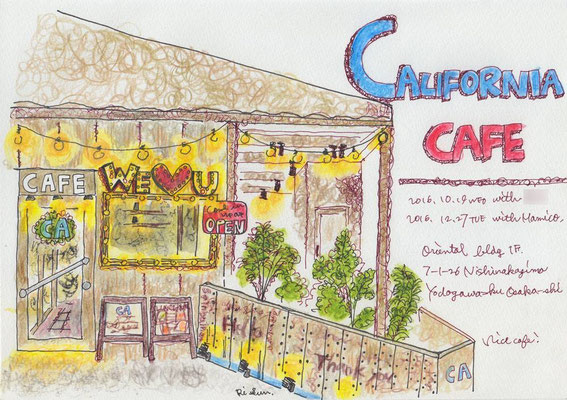 CALIFORNIA
CAFE
2016. 10. 19 WED with
2016. 12. 27 TUE with Mamico.
Oriental bldg 1F.
7-1-26 Nishinakajima
Yodogawa-ku Osaka-shi
Nice cafe!
CAFE
WE ♥ U
CA
OPEN
CA
Thank you
CA